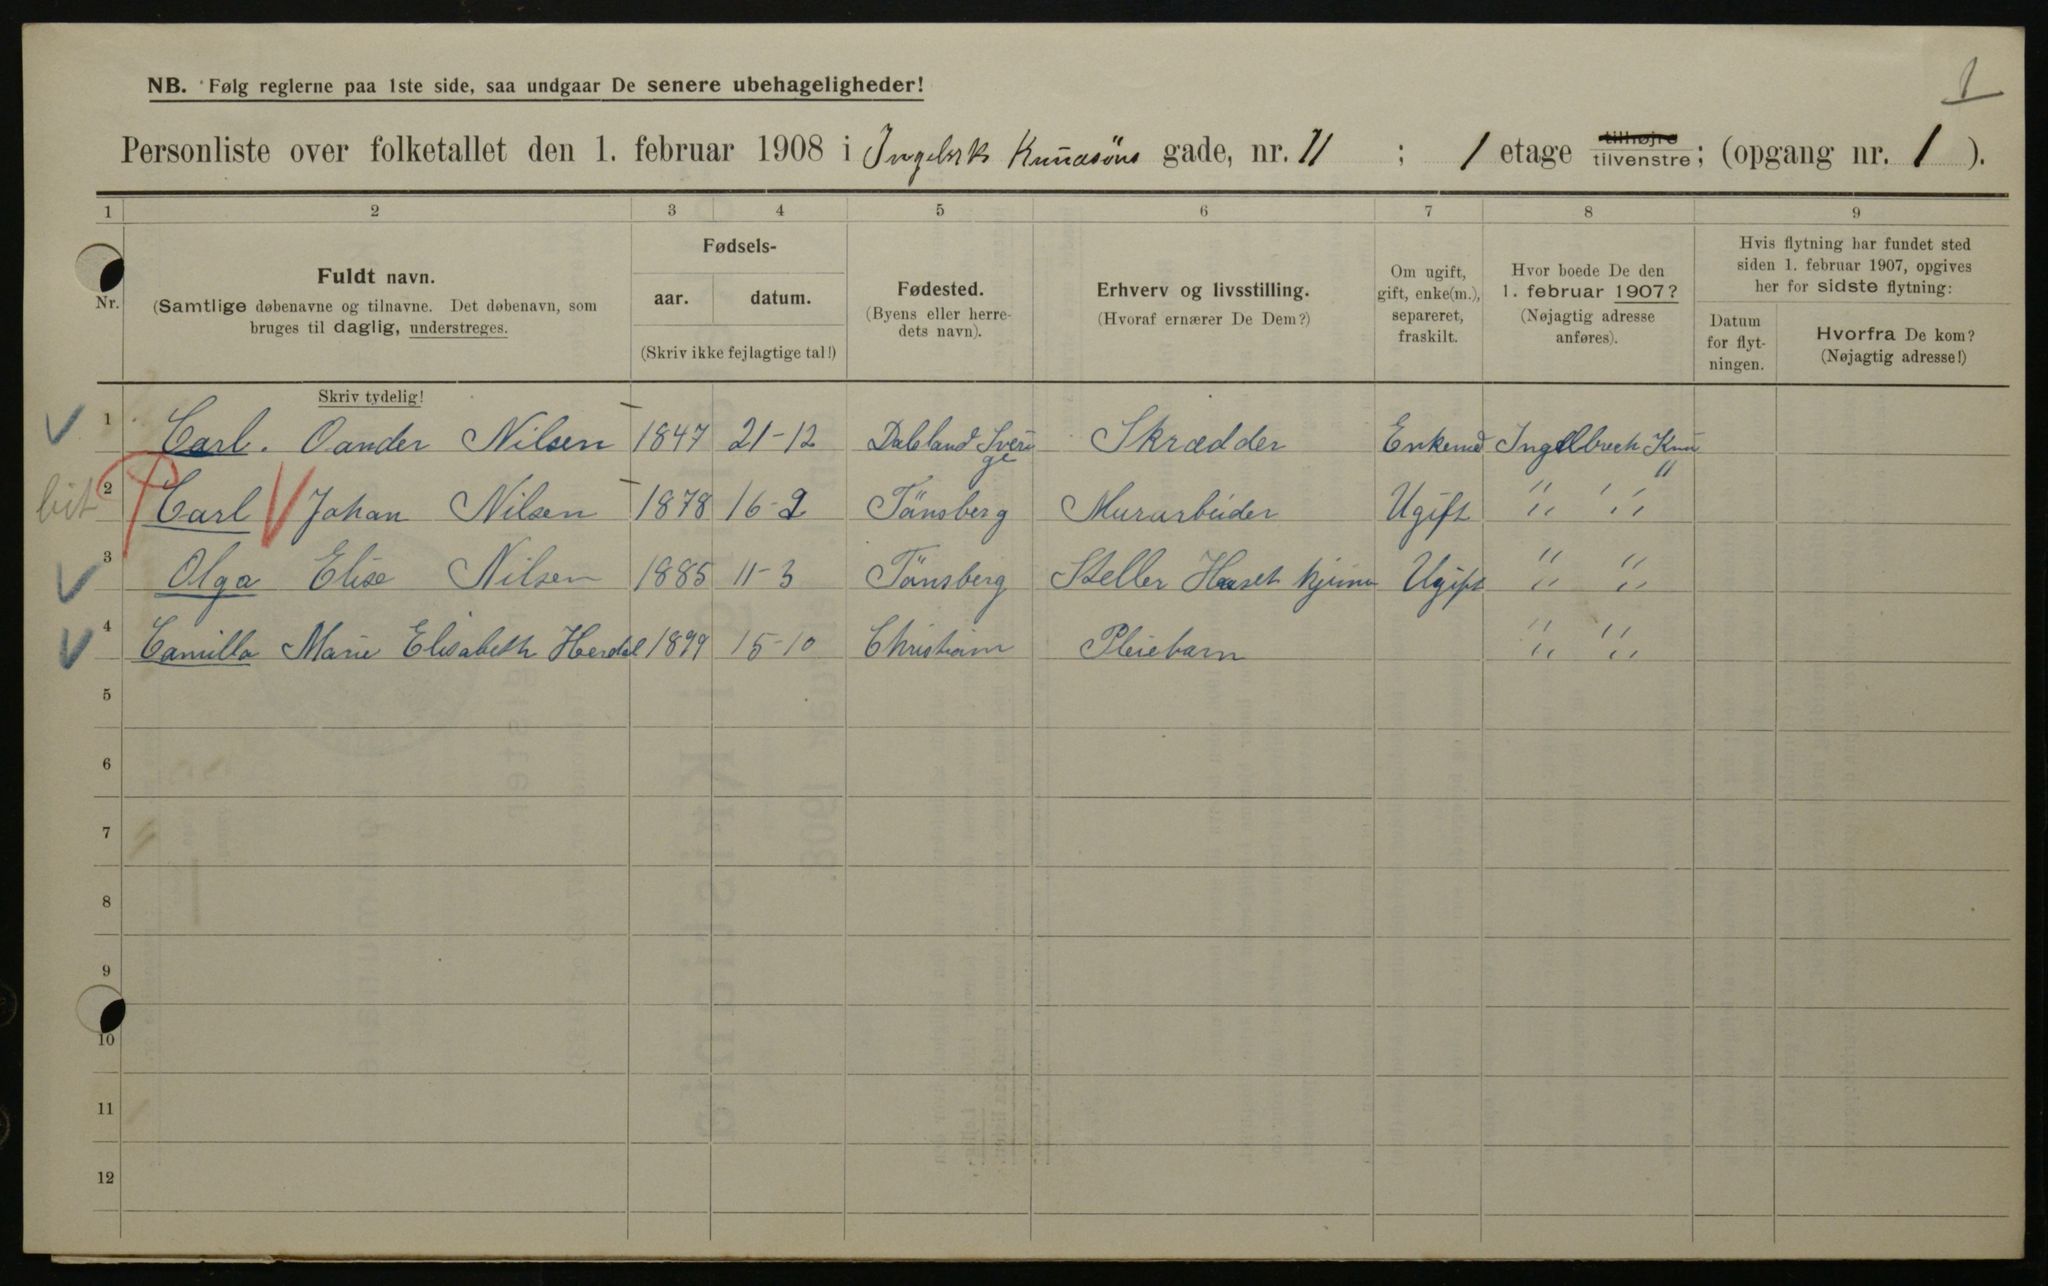 1
NB. Følg reglerne paa 1ste side, saa undgaar De senere ubehageligheder!
Personliste over folketallet den 1. februar 1908 i Ingebrk Knudsöns gade, nr. 11 ; 1 etage tilhøjre tilvenstre; (opgang nr. 1 ).
1 2 3 4 5 6 7 8 9
Nr.
Fuldt navn.
(Samtlige døbenavne og tilnavne. Det døbenavn, som
bruges til daglig, understreges.
Fødsels-
aar. datum.
(Skriv ikke fejlagtige tal!)
Fødested.
(Byens eller herre-
dets navn).
Erhverv og livsstilling.
(Hvoraf ernærer De Dem?)
Om ugift,
gift, enke(m.),
separeret,
fraskilt.
Hvor boede De den
1. februar 1907?
(Nøjagtig adresse
anføres).
Hvis flytning har fundet sted
siden 1. februar 1907, opgives
her for sidste flytning:
Datum
for flyt-
ningen.
Hvorfra De kom?
(Nøjagtig adresse!)
Skriv tydelig!
1 Carl. Oander Nilsen 1847 21-12 Dalsland Sverige Skrædder Enkemd Ingelbreck Knu
2 Carl Johan Nilsen 1878 16-2 Tönsberg Murarbeider Ugift " "
3 Olga Elise Nilsen 1885 11-3 Tönsberg Steller Huset hjime Ugift " "
4 Camilla Marie Elisabeth Herdal 1899 15-10 Christiam Pleiebarn " "
5
6
7
8
9
10
11
12